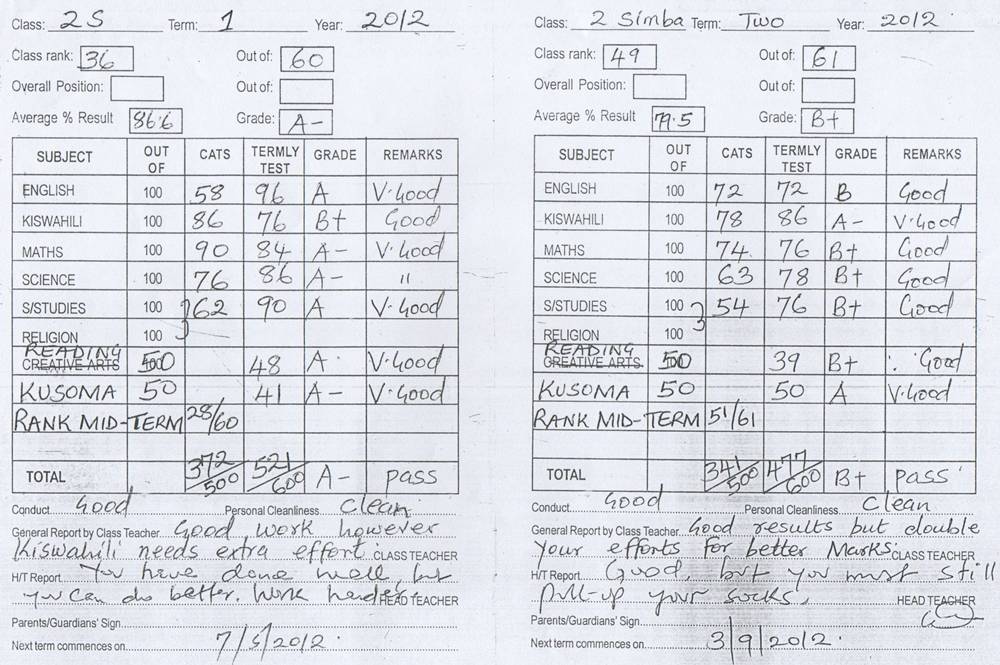 Class: 2S Term: 1 Year: 2012
Class rank: 36 Out of: 60
Overall Position: Out of:
Average % Result 86.6 Grade: A-
SUBJECT OUT OF CATS TERMLY TEST GRADE REMARKS
ENGLISH 100 58 96 A V.Good
KISWAHILI 100 86 76 B+ Good
MATHS 100 90 84 A- V.Good
SCIENCE 100 76 86 A- "
S/STUDIES 100 62 90 A V.Good
RELIGION 100
READING
CREATIVE ARTS 50 48 A V.Good
KUSOMA 50 41 A- V.Good
RANK MID-TERM 28/60
TOTAL 372/500 521/600 A- Pass
Conduct Good Personal Cleanliness Clean
General Report by Class Teacher Good work however
Kiswahili needs extra effort. CLASS TEACHER
H/T Report You have done well, but
you can do better. Work harder. HEAD TEACHER
Parents/Guardians' Sign
Next term commences on 7/5/2012.
Class: 2 Simba Term: Two Year: 2012
Class rank: 49 Out of: 61
Overall Position: Out of:
Average % Result 79.5 Grade: B+
SUBJECT OUT OF CATS TERMLY TEST GRADE REMARKS
ENGLISH 100 72 72 B Good
KISWAHILI 100 78 86 A- V.Good
MATHS 100 74 76 B+ Good
SCIENCE 100 63 78 B+ Good
S/STUDIES 100 54 76 B+ Good
RELIGION 100
READING
CREATIVE ARTS 50 39 B+ Good
KUSOMA 50 50 A V.Good
RANK MID-TERM 51/61
TOTAL 341/500 477/600 B+ Pass
Conduct Good Personal Cleanliness Clean
General Report by Class Teacher Good results but double
your efforts for better Marks. CLASS TEACHER
H/T Report Good, but you must still
pull-up your socks. HEAD TEACHER
Parents/Guardians' Sign
Next term commences on 3/9/2012.